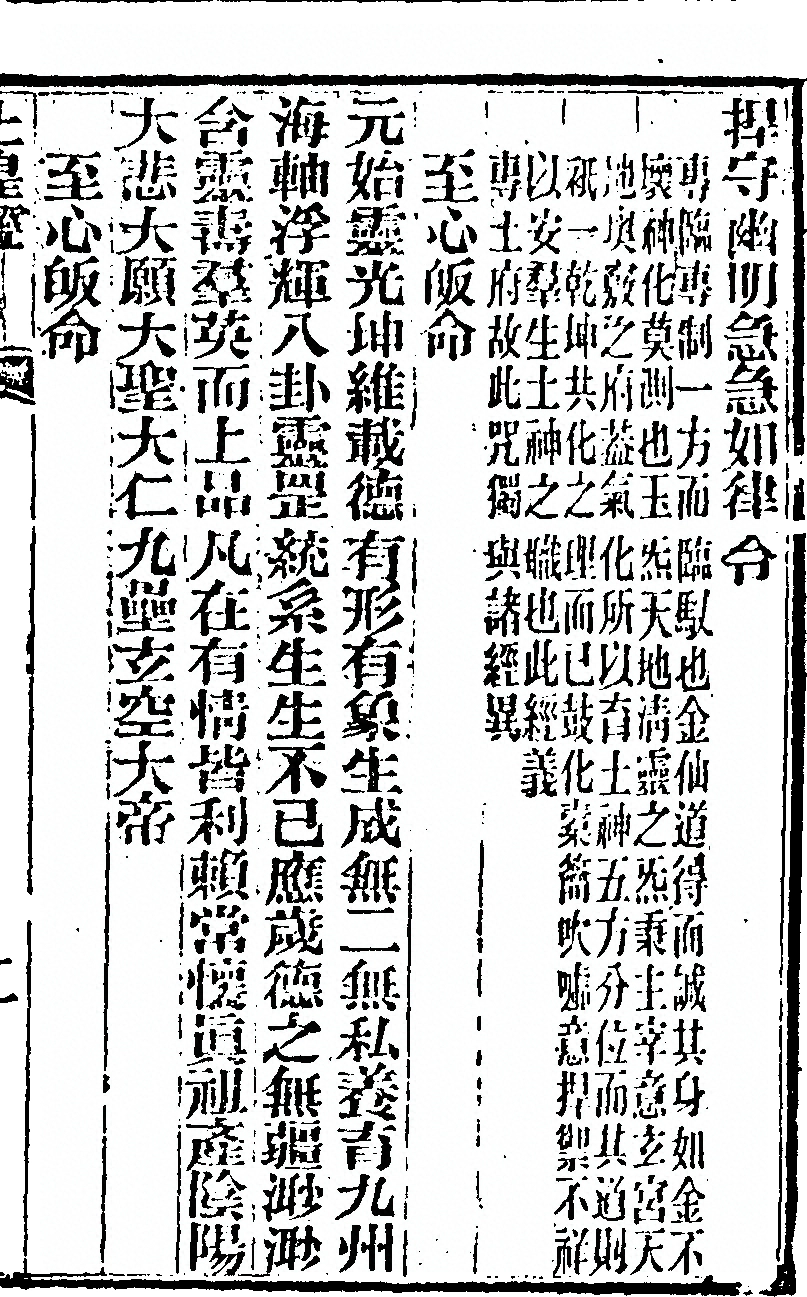 捍守幽明急急如律令
專臨專制一方而臨馭也金仙道得而誠其身如金不
壞神化莫測也玉炁天地淸靈之炁秉主宰意玄宮天
地奥竅之府葢氣化所以育土神五方分位而其道則
祇一乾坤共化之理而已鼓化橐籥吹噓意捍禦不祥
以安羣生土神之職也此經義
專土府故此咒獨與諸經異
至心皈命
元始靈光坤維載德有形有象生成無二無私養育九州
海軸浮輝八卦靈罡統系生生不已應歲德之無疆渺渺
含靈壽羣英而上品凡在有情皆利賴常懷眞祖產陰陽
大悲大願大聖大仁九壘玄空大帝
至心皈命
土皇